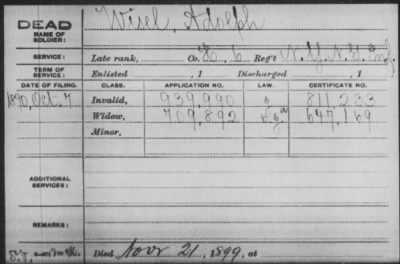 DEAD
NAME OF SOLDIER: Wisel, Adolph
SERVICE: Late rank, Co. E. 6 Reg't N.Y.N.G. Inf.
TERM OF SERVICE: Enlisted , 1 Discharged , 1
DATE OF FILING. CLASS. APPLICATION NO. LAW. CERTIFICATE NO.
1890, Oct. 7 Invalid, 939,990 811,233
Widow, 709,892 647,169
Minor,
ADDITIONAL SERVICES:
REMARKS:
Died Nov 21, 1899, at